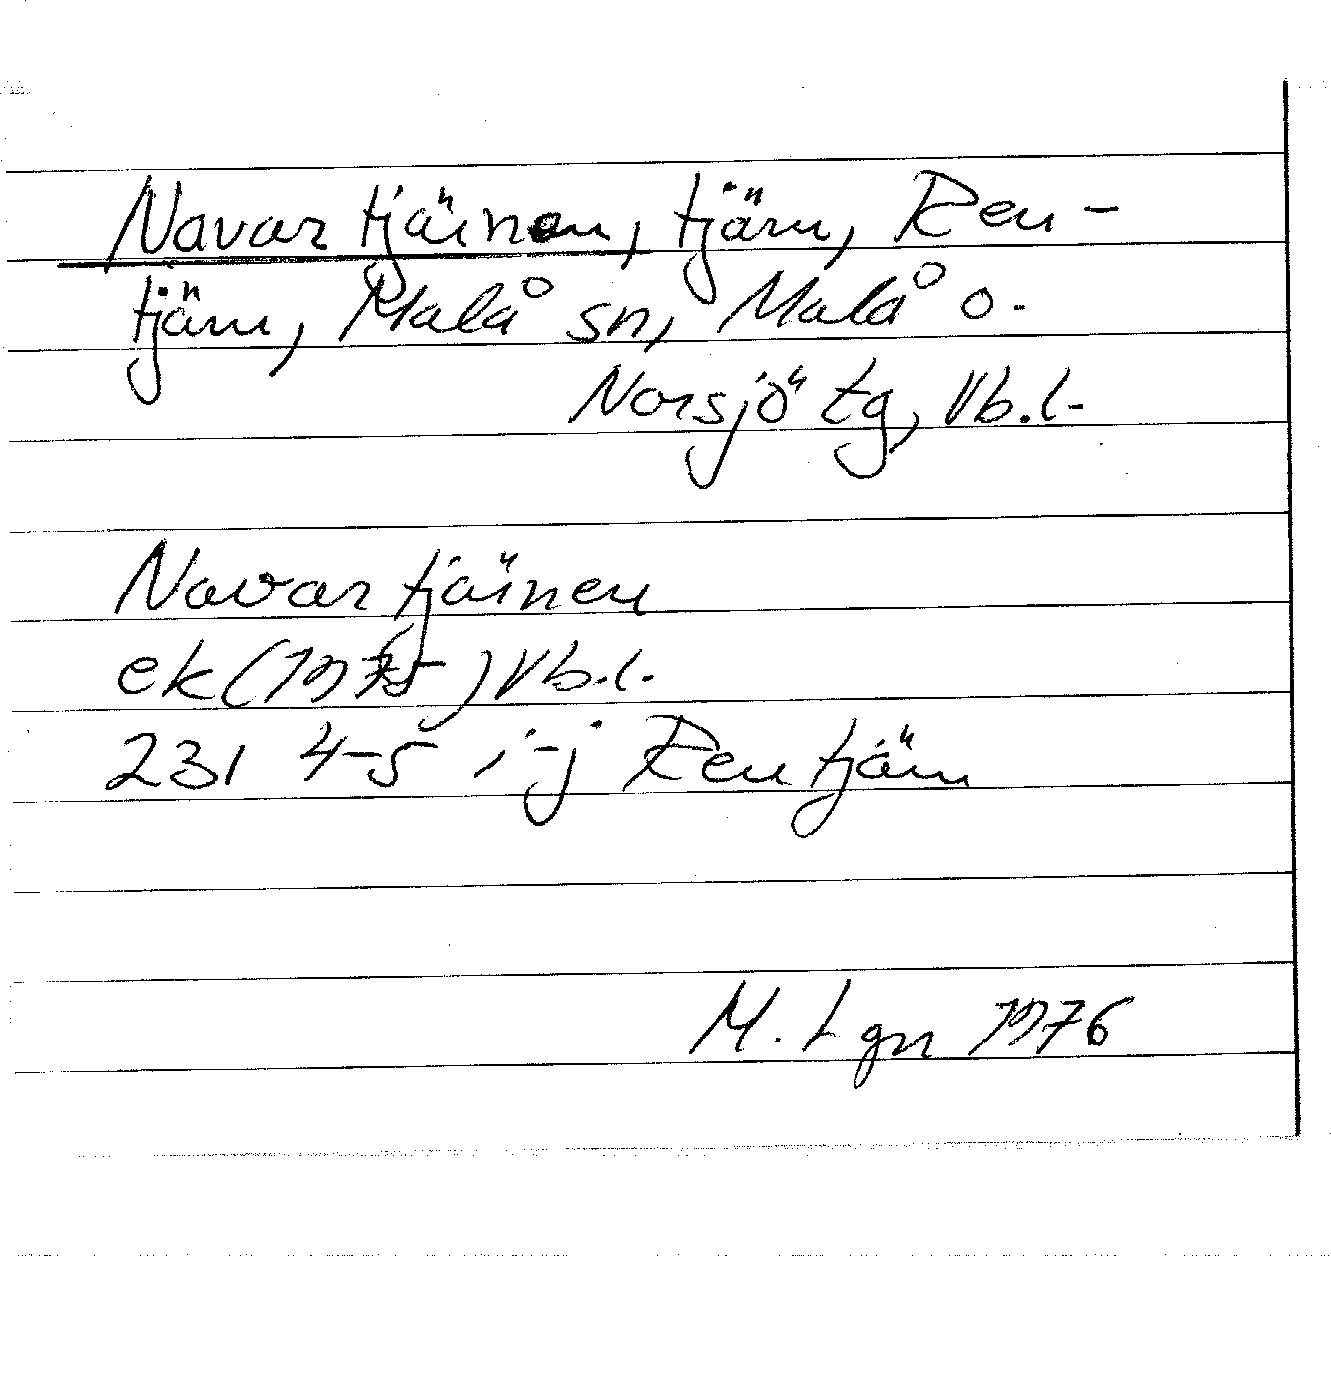 Navartjärnen, tjärn, Ren-
tjärn, Malå sn, Malå o.
Norsjö tg, Vb.l.
Navartjärnen
ek (1975) Vb.l.
231 4-5 i-j Rentjärn
M. Lgn 1976